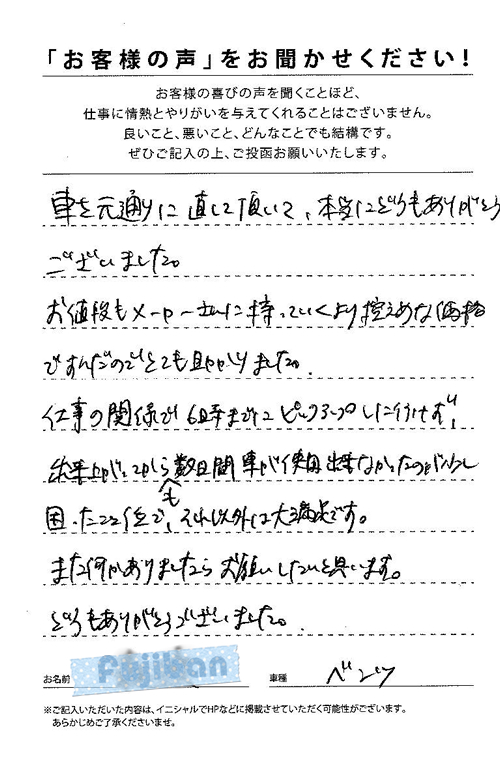 「お客様の声」をお聞かせください!
お客様の喜びの声を聞くことほど、
仕事に情熱とやりがいを与えてくれることはございません。
良いこと、悪いこと、どんなことでも結構です。
ぜひご記入の上、ご投函お願いいたします。
車を元通りに直して頂いて、本当にどうもありがとう
ございました。
お値段もメーカーさんに持っていくより控えめな価格
ですんだのでとても助かりました。
仕事の関係で6時までにピックアップしに行けず、
出来上がってからも数日間車が使用出来なかったのが少し
困ったこと位で、それ以外は大満足です。
また何かありましたらお願いしたいと思います。
どうもありがとうございました。
お名前 Fujiban 車種 ベンツ
※ご記入いただいた内容は、イニシャルでHPなどに掲載させていただく可能性がございます。
あらかじめご了承くださいませ。